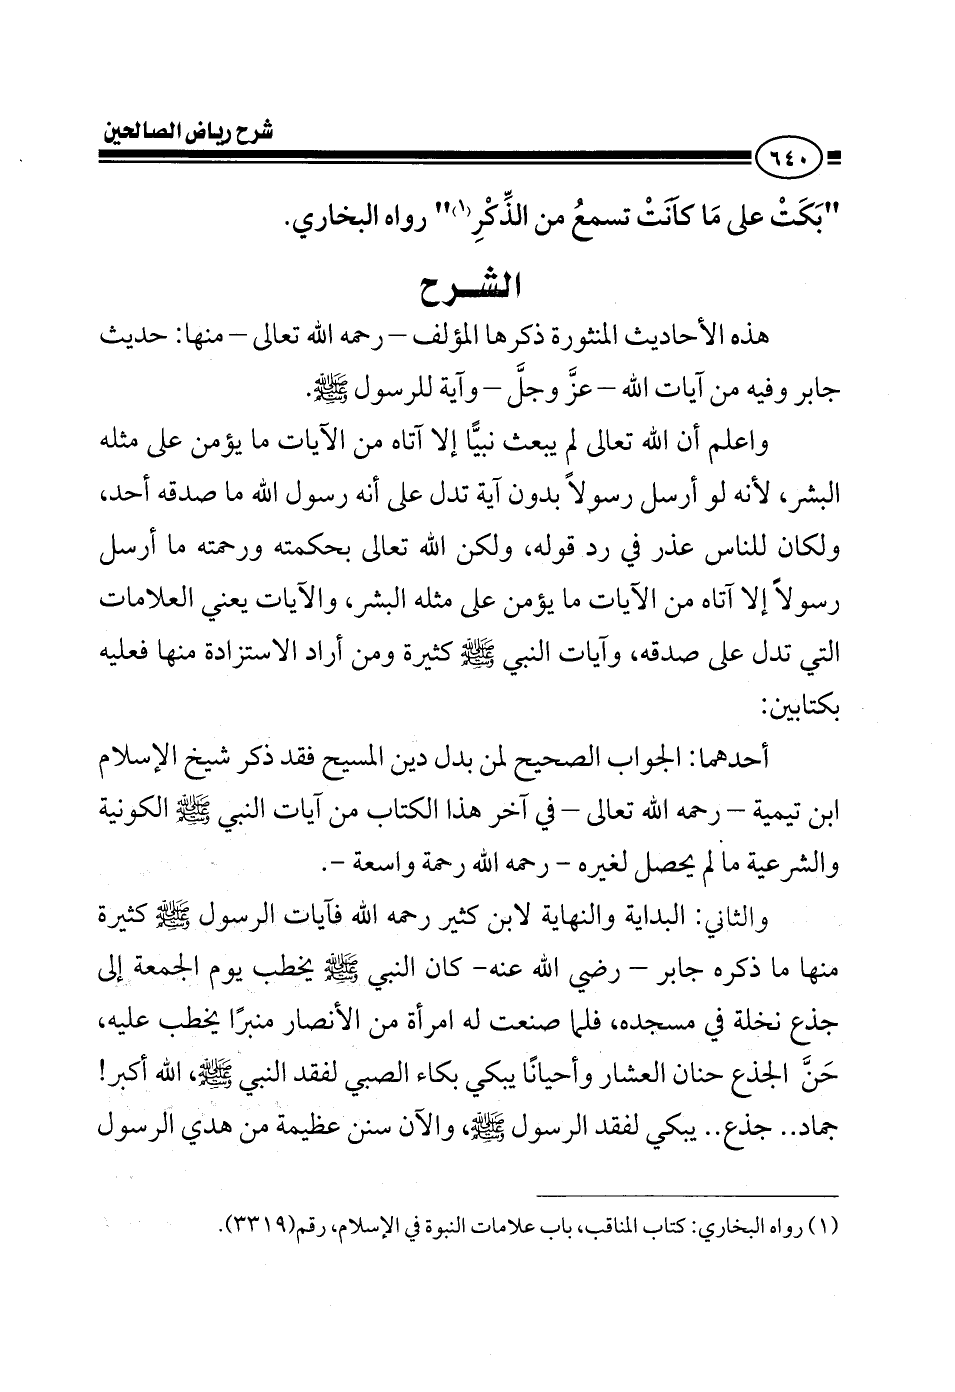 شرح رياض الصالحين
٦٤٠
"بَكَتْ على مَا كَانَتْ تسمعُ من الذِّكْرِ(١)" رواه البخاري.
الشرح
هذه الأحاديث المنثورة ذكرها المؤلف – رحمه الله تعالى – منها: حديث
جابر وفيه من آيات الله – عزَّ وجلَّ – وآية للرسول ﷺ.
واعلم أن الله تعالى لم يبعث نبيًّا إلا آتاه من الآيات ما يؤمن على مثله
البشر، لأنه لو أرسل رسولاً بدون آية تدل على أنه رسول الله ما صدقه أحد،
ولكان للناس عذر في رد قوله، ولكن الله تعالى بحكمته ورحمته ما أرسل
رسولاً إلا آتاه من الآيات ما يؤمن على مثله البشر، والآيات يعني العلامات
التي تدل على صدقه، وآيات النبي ﷺ كثيرة ومن أراد الاستزادة منها فعليه
بكتابين:
أحدهما: الجواب الصحيح لمن بدل دين المسيح فقد ذكر شيخ الإسلام
ابن تيمية – رحمه الله تعالى – في آخر هذا الكتاب من آيات النبي ﷺ الكونية
والشرعية ما لم يحصل لغيره – رحمه الله رحمة واسعة –.
والثاني: البداية والنهاية لابن كثير رحمه الله فآيات الرسول ﷺ كثيرة
منها ما ذكره جابر – رضي الله عنه- كان النبي ﷺ يخطب يوم الجمعة إلى
جذع نخلة في مسجده، فلما صنعت له امرأة من الأنصار منبرًا يخطب عليه،
حَنَّ الجذع حنان العشار وأحيانًا يبكي بكاء الصبي لفقد النبي ﷺ، الله أكبر!
جماد.. جذع.. يبكي لفقد الرسول ﷺ، والآن سنن عظيمة من هدي الرسول
(١) رواه البخاري: كتاب المناقب، باب علامات النبوة في الإسلام، رقم(٣٣١٩).